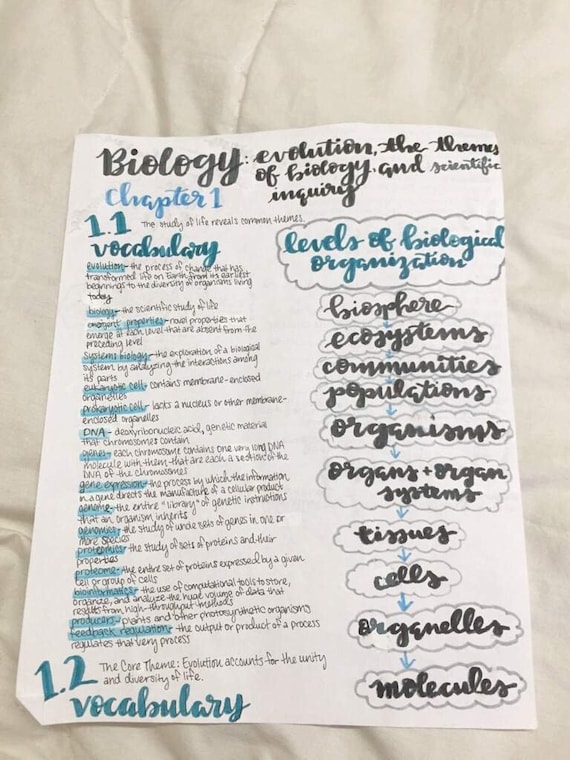 Biology: evolution, the themes
of biology, and scientific
inquiry
Chapter 1
1.1 The study of life reveals common themes.
vocabulary
evolution- the process of change that has
transformed life on Earth from its earliest
beginnings to the diversity of organisms living
today
biology- the scientific study of life
emergent properties- novel properties that
emerge at each level that are absent from the
preceding level
systems biology- the exploration of a biological
system by analyzing the interactions among
its parts
eukaryotic cell- contains membrane-enclosed
organelles
prokaryotic cell- lacks a nucleus or other membrane-
enclosed organelles
DNA- deoxyribonucleic acid, genetic material
that chromosomes contain
genes- each chromosome contains one very long DNA
molecule with them that are each a section of the
DNA of the chromosome
gene expression- the process by which the information
in a gene directs the manufacture of a cellular product
genome- the entire "library" of genetic instructions
that an organism inherits
genomics- the study of whole sets of genes in one or
more species
proteomics- the study of sets of proteins and their
properties
proteome- the entire set of proteins expressed by a given
cell or group of cells
bioinformatics- the use of computational tools to store,
organize, and analyze the huge volume of data that
results from high-throughput methods
producers- plants and other photosynthetic organisms
feedback regulation- the output or product of a process
regulates that very process
1.2 The Core Theme: Evolution accounts for the unity
and diversity of life.
vocabulary
levels of biological
organization
biosphere
ecosystems
communities
populations
organisms
organs + organ
systems
tissues
cells
organelles
molecules